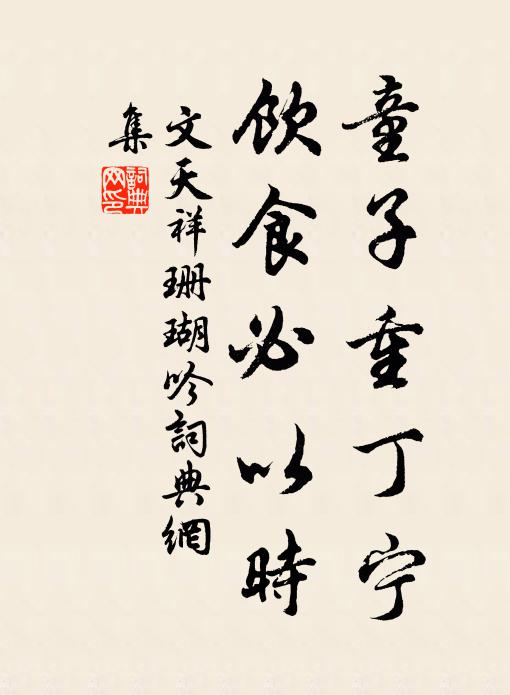 童子重丁宁
飲食必以時
文天祥珊瑚吟詞典網
集
詞典
网印